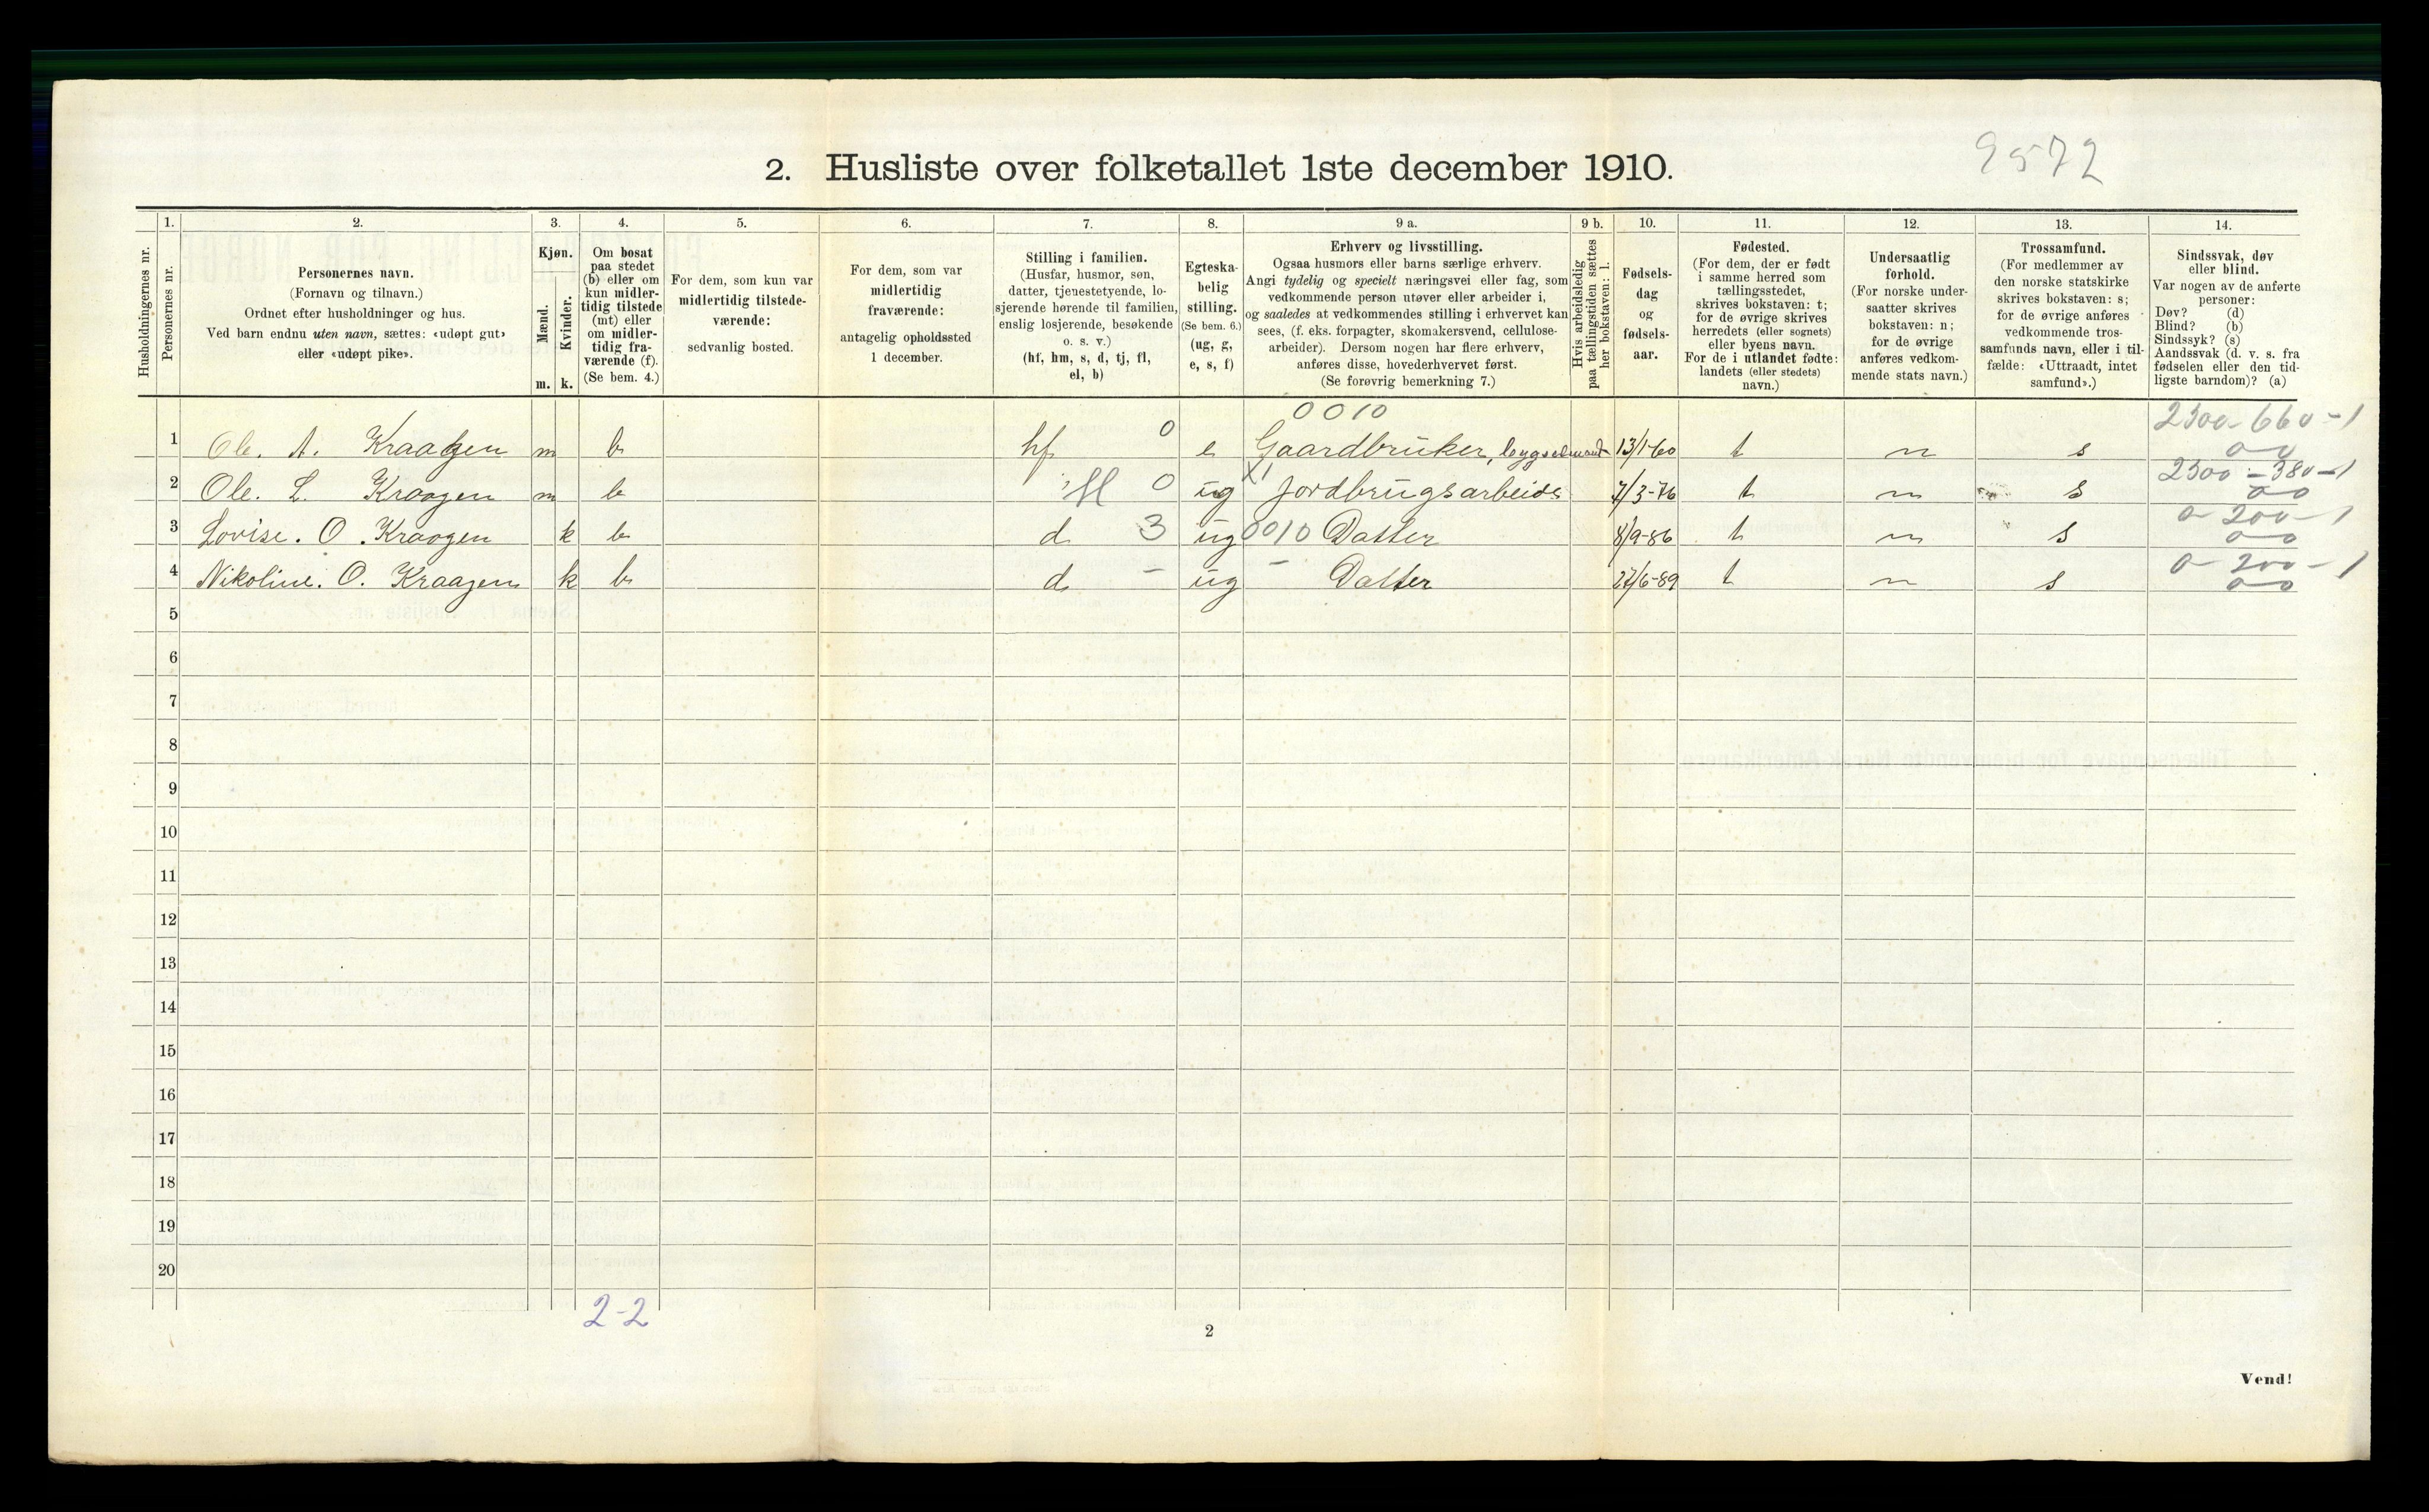 9572
2. Husliste over folketallet 1ste december 1910.
Husholdningernes nr.
1.
Personernes nr.
2.
Personernes navn.
(Fornavn og tilnavn.)
Ordnet efter husholdninger og hus.
Ved barn endnu uten navn, sættes: «udøpt gut»
eller «udøpt pike».
3.
Kjøn.
Mænd.
Kvinder.
m. k.
4.
Om bosat
paa stedet
(b) eller om
kun midler-
tidig tilstede
(mt) eller
om midler-
tidig fra-
værende (f).
(Se bem. 4.)
5.
For dem, som kun var
midlertidig tilstede-
værende:
sedvanlig bosted.
6.
For dem, som var
midlertidig
fraværende:
antagelig opholdssted
1 december.
7.
Stilling i familien.
(Husfar, husmor, søn,
datter, tjenestetyende, lo-
sjerende hørende til familien,
enslig losjerende, besøkende
o. s. v.)
(hf, hm, s, d, tj, fl,
el, b)
8.
Egteska-
belig
stilling.
(Se bem. 6.)
(ug, g,
e, s, f)
9 a.
Erhverv og livsstilling.
Ogsaa husmors eller barns særlige erhverv.
Angi tydelig og specielt næringsvei eller fag, som
vedkommende person utøver eller arbeider i,
og saaledes at vedkommendes stilling i erhvervet kan
sees, (f. eks. forpagter, skomakersvend, cellulose-
arbeider). Dersom nogen har flere erhverv,
anføres disse, hovederhvervet først.
(Se forøvrig bemerkning 7.)
9 b.
Hvis arbeidsledig
paa tællingstiden sættes
her bokstaven: l.
10.
Fødsels-
dag
og
fødsels-
aar.
11.
Fødested.
(For dem, der er født
i samme herred som
tællingsstedet,
skrives bokstaven: t;
for de øvrige skrives
herredets (eller sognets)
eller byens navn.
For de i utlandet fødte:
landets (eller stedets)
navn.)
12.
Undersaatlig
forhold.
(For norske under-
saatter skrives
bokstaven: n;
for de øvrige
anføres vedkom-
mende stats navn.)
13.
Trossamfund.
(For medlemmer av
den norske statskirke
skrives bokstaven: s;
for de øvrige anføres
vedkommende tros-
samfunds navn, eller i til-
fælde: «Uttraadt, intet
samfund».)
14.
Sindssvak, døv
eller blind.
Var nogen av de anførte
personer:
Døv? (d)
Blind? (b)
Sindssyk? (s)
Aandssvak (d. v. s. fra
fødselen eller den tid-
ligste barndom)? (a)
0010 2300-660-1
1 Ole. A. Kraagen m b hf 0 e Gaardbruker, bygselmand 13/1-60 t n s 00
2300-380-1
2 Ole. L. Kraagen m b fl 0 ug X1 Jordbrugsarbeide 7/3-76 t n s 00
0-200-1
3 Lovise. O. Kraagen k b d 3 ug 0010 Datter 8/9-86 t n s 00
0-200-1
4 Nikoline. O. Kraagen k b d - ug - Datter 27/6-89 t n s 00
5
6
7
8
9
10
11
12
13
14
15
16
17
18
19
20
2-2
2
Vend!